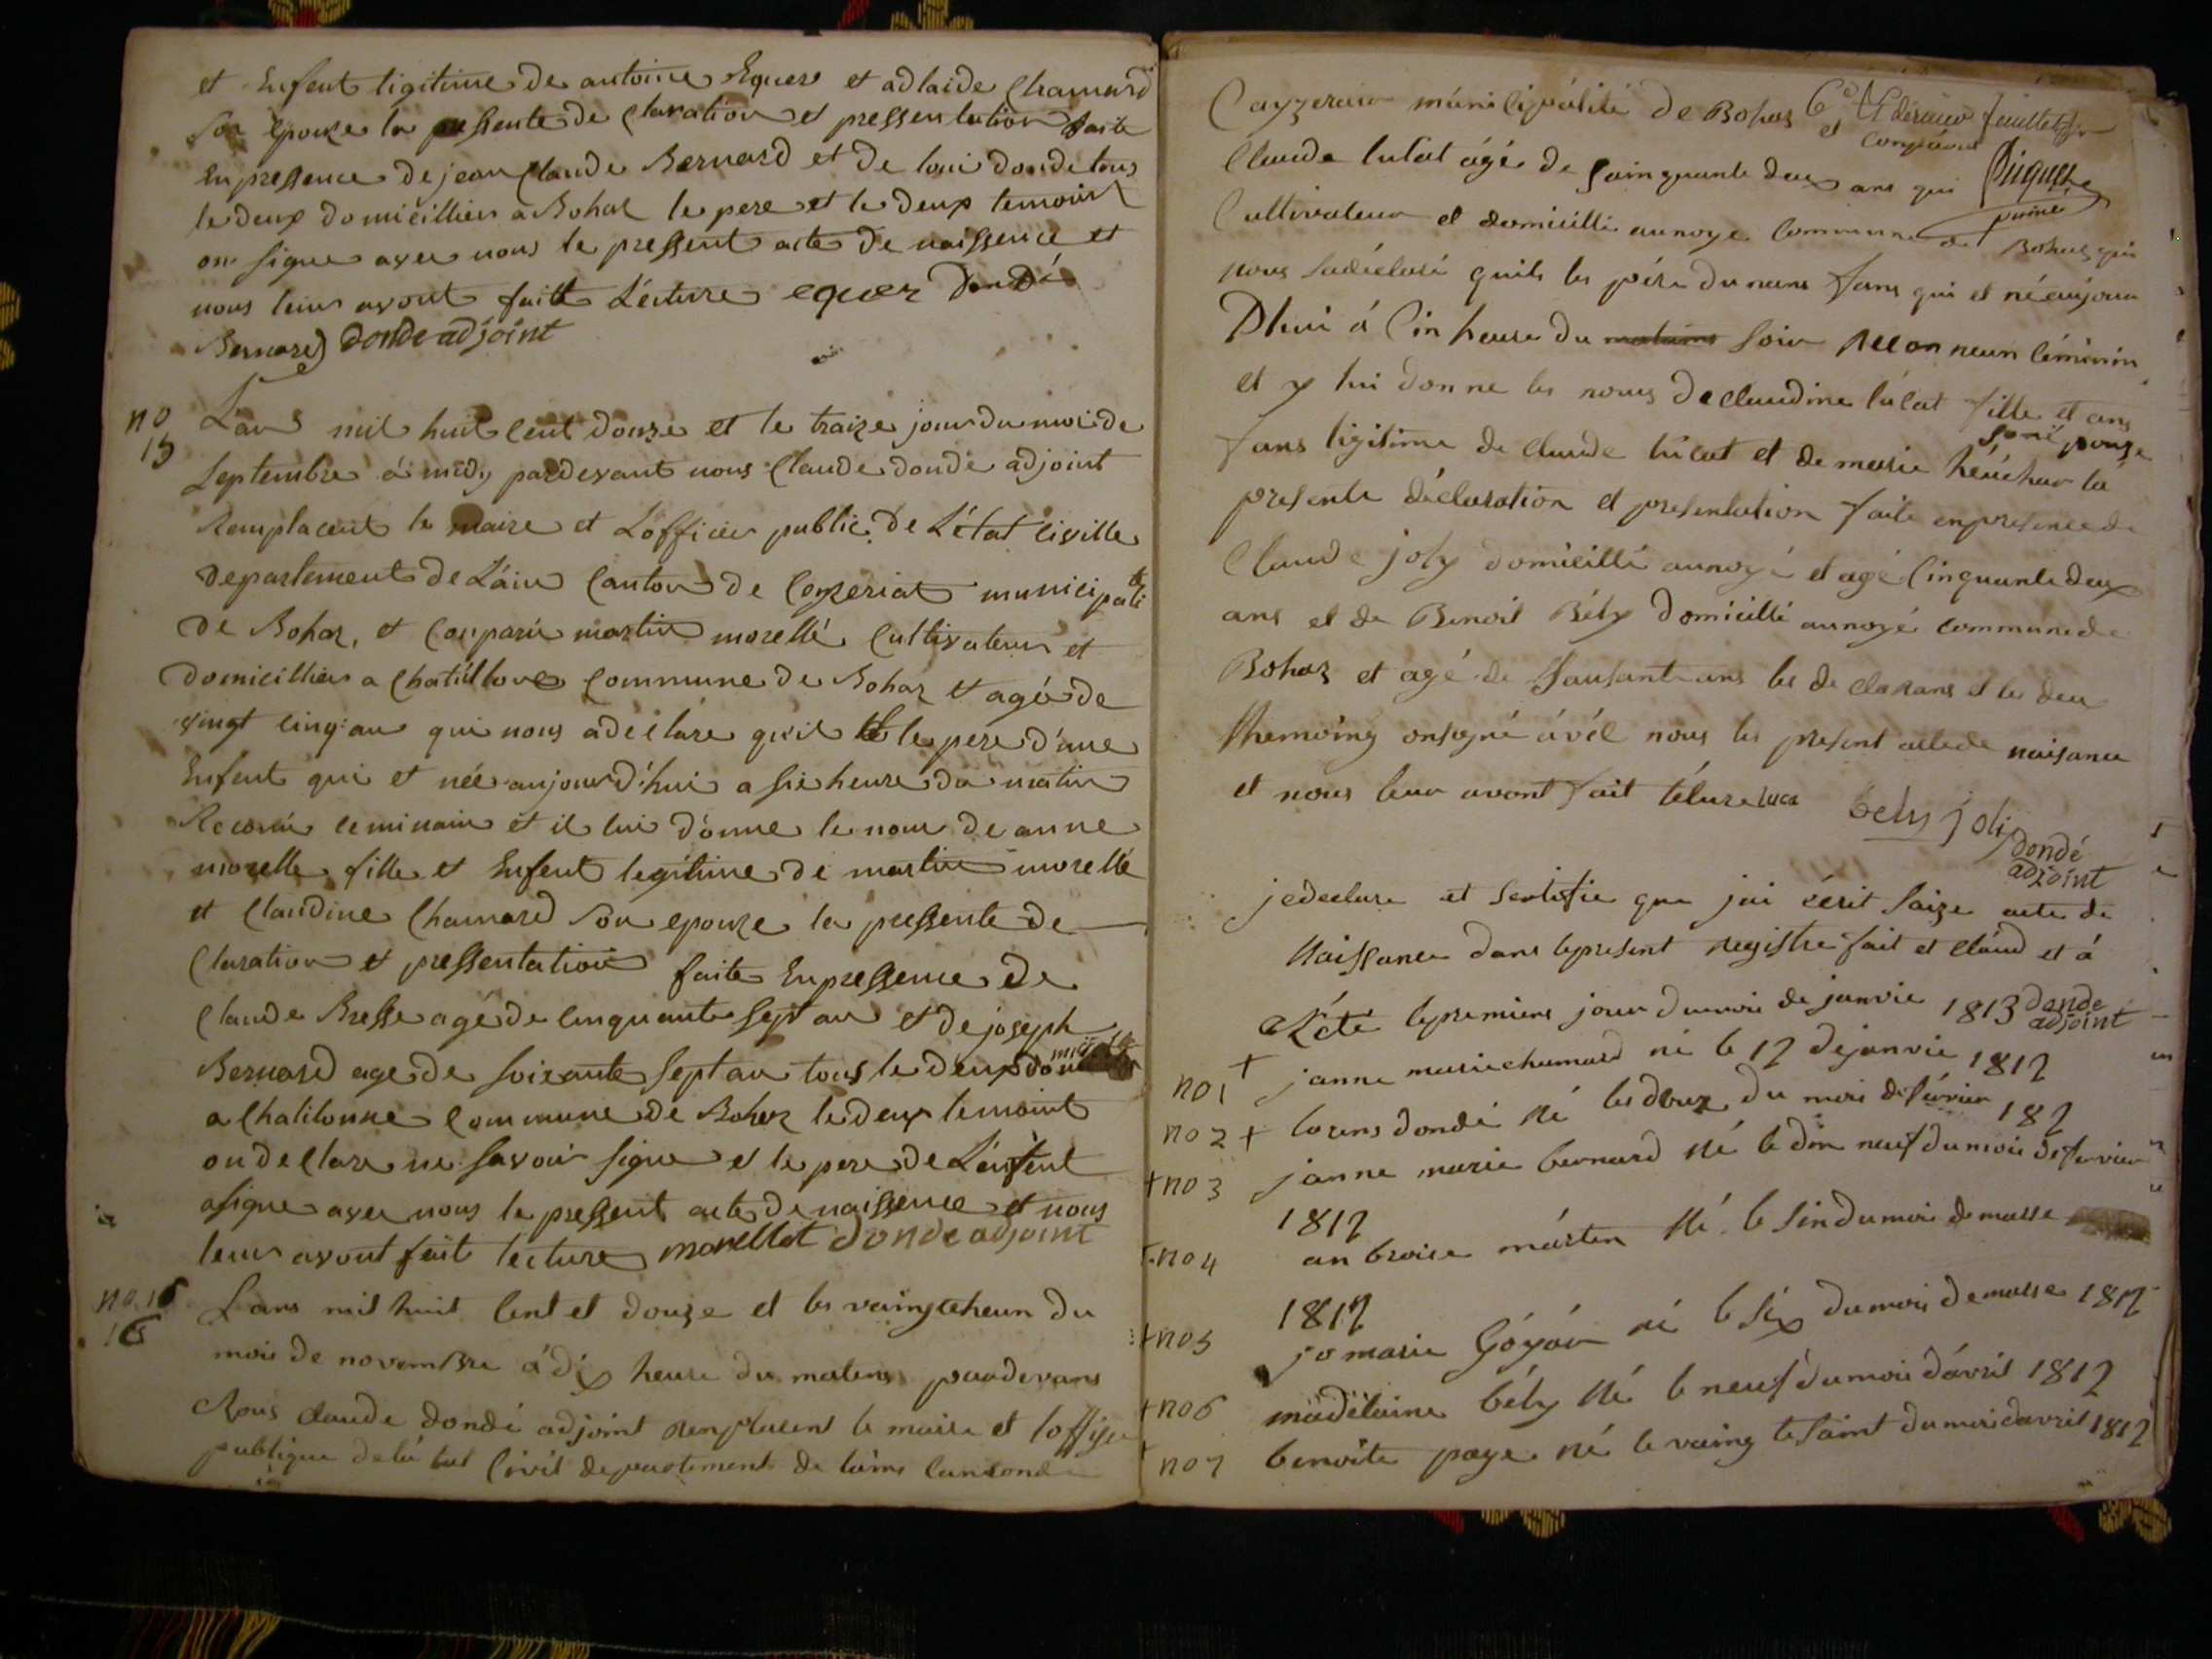 et Enfent ligitime de antoine Equer et adlaide Chamard
Son Epouze la pressente de Claration et pressentation faite
En pressence de jean Claude Bernard et de loui donde tous
le deux domicillier a Bohas le pere et le deux temoint
on signe avec nous le pressent acte de naissence et
nous leur avont faitt Lecture equer Dondé
Bernard donde adjoint
no 15
L'ans mil huit Cent douze et le traize jour du moi de
Septembre à midy pardevant nous Claude dondé adjoint
Remplacent le maire et L'officier public De L'état civille
Departement de L'ain Canton de Ceyzeriat municipalité
De Bohaz, et Comparu martin morellé Cultivateur et
domicillier a Chatillone Commune de Bohaz et agé de
vingt cinq an qui nous a déclare qu'il et le pere d'une
Enfent qui et née aujourd'hui a sie heure du matin
Reconu ceminain et il lui donne le nom de anne
morelle fille et Enfent legitime de martin morellé
et Claudine Chamard Son epouze la pressente de
Claration et pressentation faite En pressence de
Claude Bresse agé de cinquante sept an et de joseph
Bernard age de soixante sept an tous le deux domicillier
a Chatilonne Commune de Bohez le deux temoint
on declare ne savoir signe et le pere de L'enfent
a signe avec nous le pressent acte de naissence et nous
leur avont fait lecture morellet donde adjoint
no 16
16
Lans mil huit Cent et douze et les vaingteheun du
moi de novembre à dix heure du matens pardevans
Nous Claude dondé adjoint remplacent le maire et loffisie
publique de lé tat Civil departement de lains Canton de
Cayzeriat municipalité de Bohas et Comparu
feuillet
Claude lucat âgé de Sainquante deux ans qui
Cultivateur et domicillé au noye Commune de Bohas qui
nous sadéclaré quils les pére du nans fans qui et né aujour
Dhui à Cin heure du matins soir Reconneun céminin
et y lui donne les noms de claudine lucat fille et ans
fans ligitime de claude lucat et de marie héuchar la
Soné pouze
presente déclaration et presentation faite en presence de
Claude joly domicillé au noyé et agé Cinquante deux
ans et de Benoit Bély domicillé au noyé commune de
Bohaz et agé de Sausant ans les de clarans et les deu
themoing on signé àvél nous les present acte de naisance
et nous leur avont fait lélure luca bely joli
dondé
adjoint
je declare et sertifie que jai écrit Saize acte de
Naissance dans le present registre fait et claud et à
Réte le premiers jour du moi de janvie 1813 donde
adjoint
no 1 + janne marie chamard né le 12 de janvie 1812
no 2 + lorens dondé Né les douz du moi de février 182
+ no 3 janne marie bernard Né le din neuf du moi de fevrier
1812
+ no 4 anbroise mártin Né le sin du moi de marse
1812
+ no 5 jo marie Góyár né le six du moi de marse 1812
+ no 6 madélaine bély Né le neuf du moi d'avril 1812
+ no 7 benoite paye né le vaing te saint du moi davril 1812